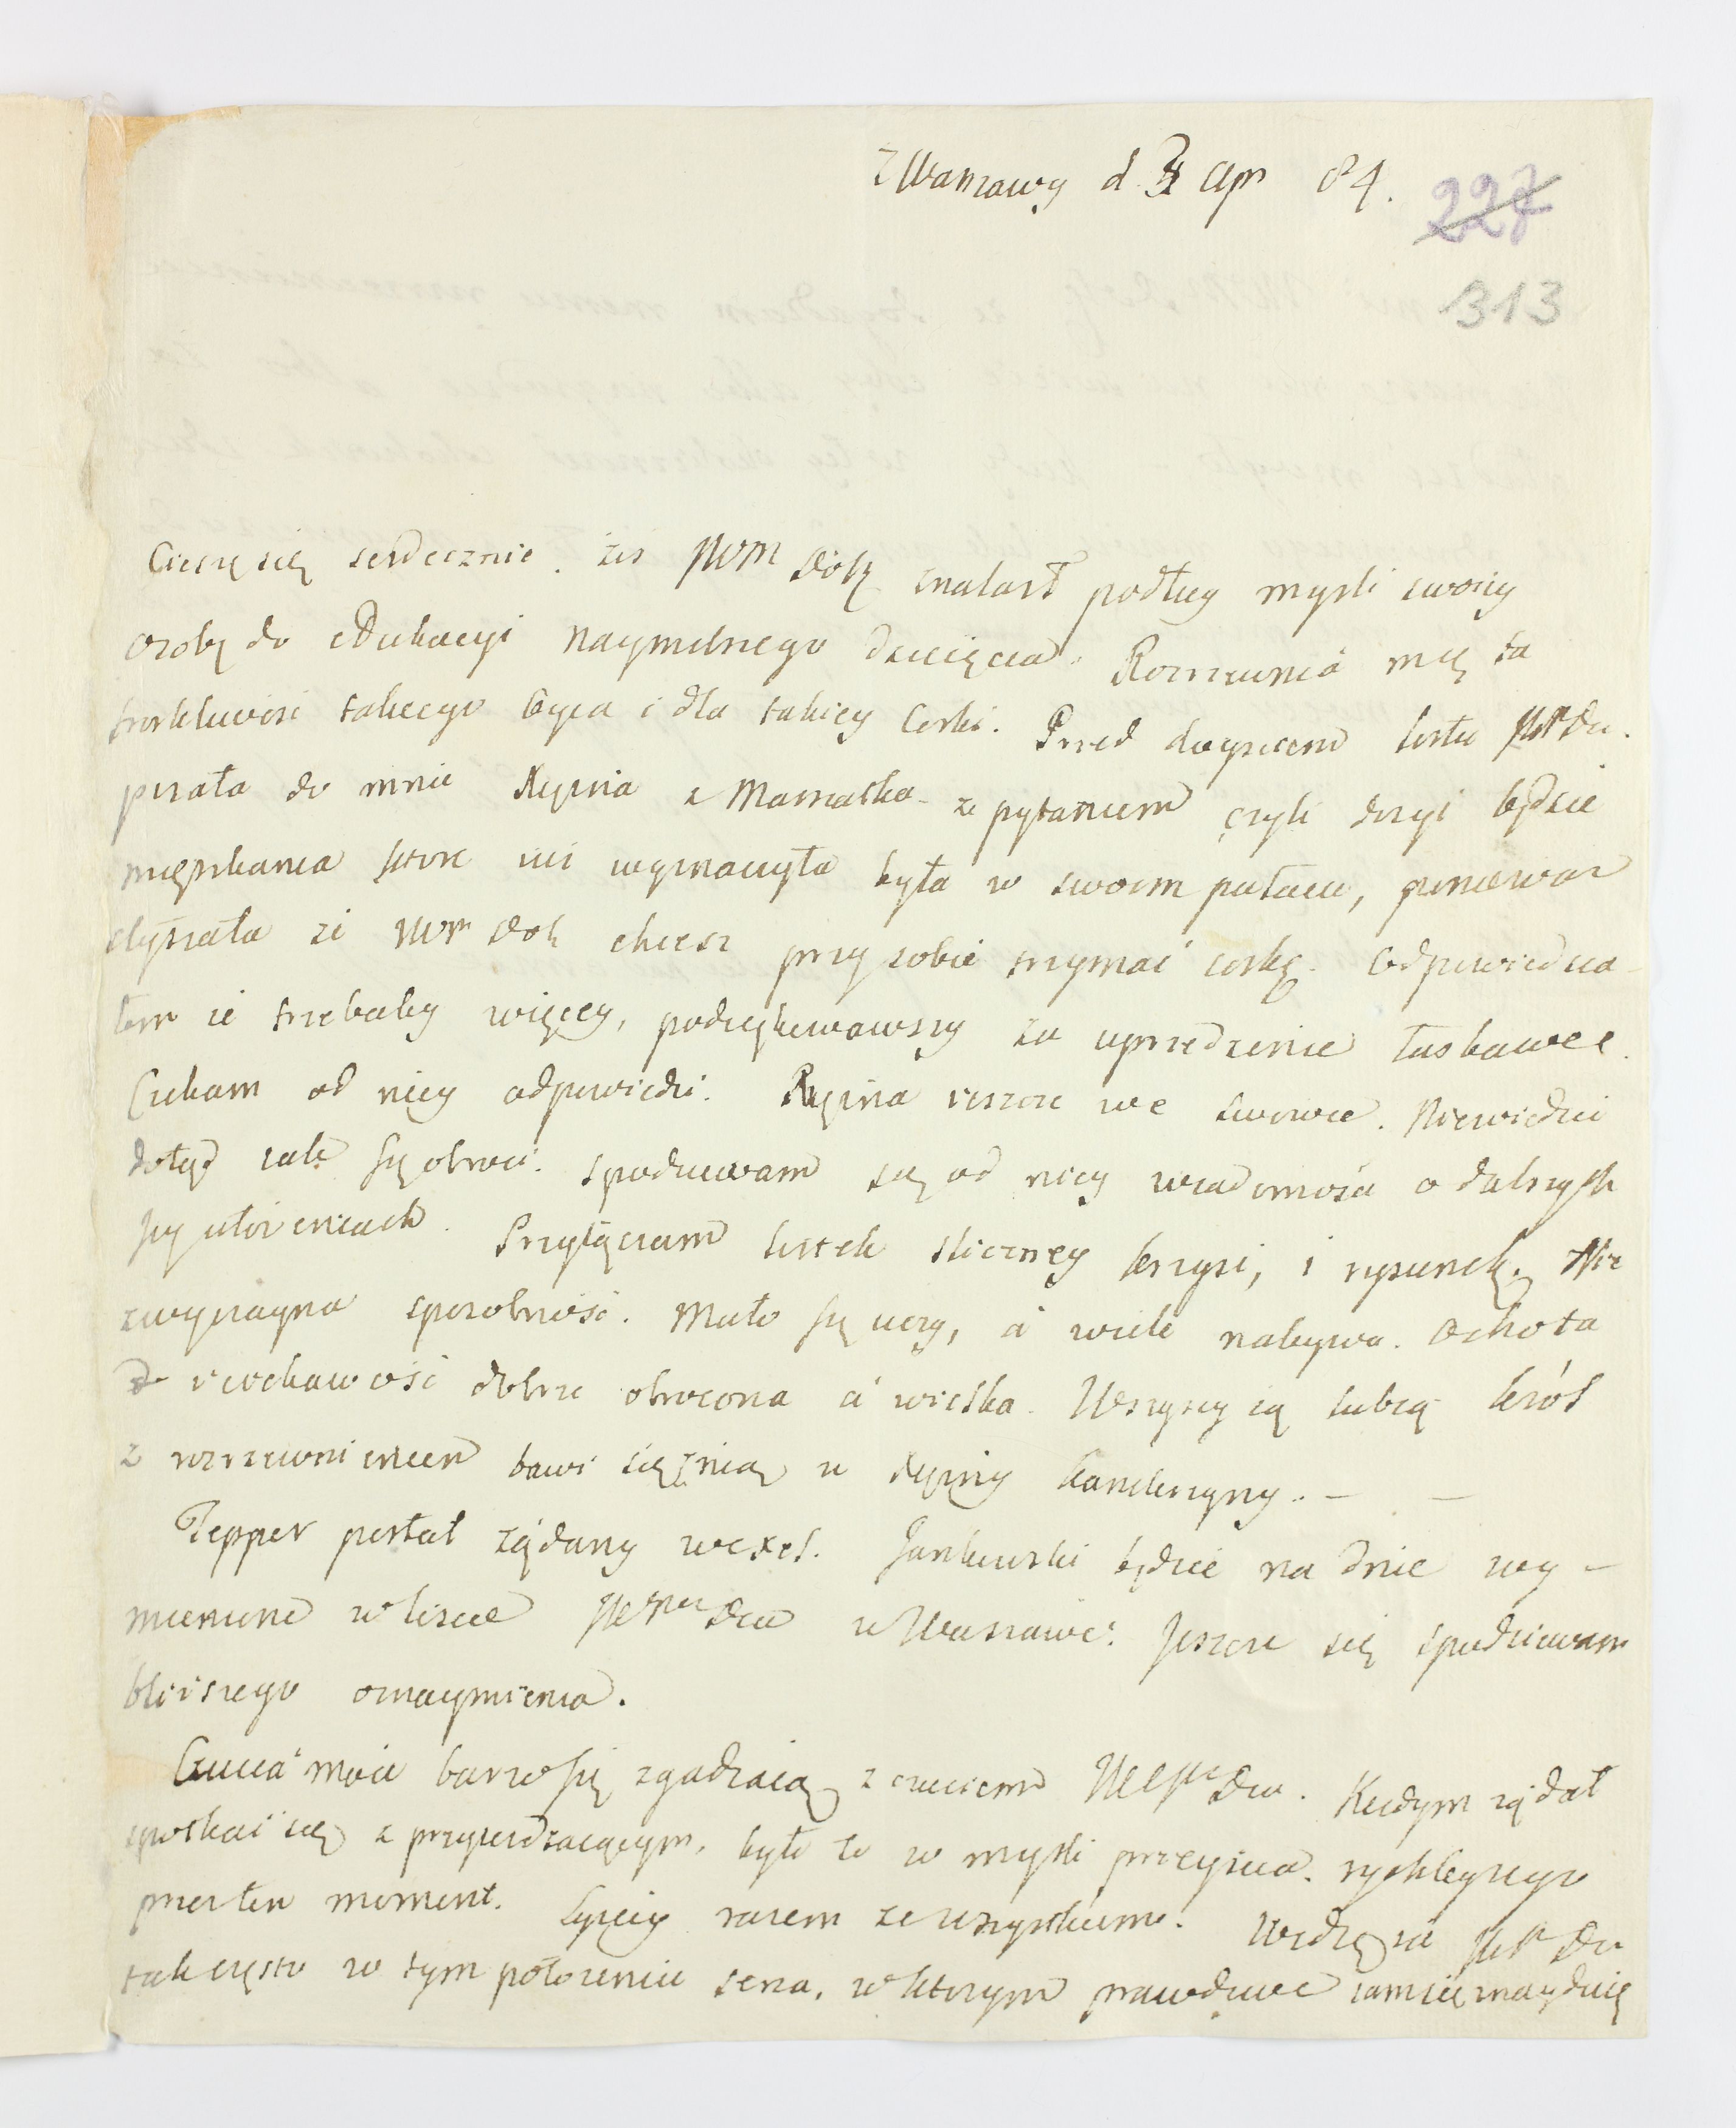 z Warszawy d. Apr 84.
227
313
Cieszę się serdecznie. żeś WPM Dobr znalazł podług mysli swoiey
osobę do edukacyi naymilszego dziecięcia. Rozrzewnia mię ta
troskliwość takiego Oyca i dla takiey Corki. Przed doyściem listu
pisała do mnie Xiężna z Mamałka z pytaniem czyli dosyć będzie
mięszkania ktore iei wyznaczyła była w swoim pałacu, poniewaz
słyszała że WPM Dobr chcesz przy sobie trzymać corkę. Odpowiedzia-
łem że trzebaby więcey, podziękowawszy za uprzedzenie łaskawee.
Czekam od niey odpowiedzi. Xiężna ieszcze we Lwowie. Niewiedzieć
dotąd iak się obroci. Spodziewam się od niey wiadomości o dalszych
iey ułożeniach. Przyłączam listek sliczney Krzysi, i rysunek. Nie
zwyczayna sposobność. Mało się uczy, a wiele nabywa. Ochota
i ciekawość dobrze obrocona a wielka. Wszyscy ią lubią Król
z rozrzewnieniem bawi się z nią u Xiężny Kanclerzyny. — —
Tepper posłał żądany wexel. Jankowski będzie na dnie wy-
mienione w liscie w Warszawie. Jeszcze się spodziewam
bliższego oznaymienia.
Czucia moie barzo się zgadzaią z czuciem. Kiedym żądał
spotkać się z przyieżdzaiącym, było to w mysli przeyścia rychleyszego
przez ten moment. Lepiey razem ze wszystkiemi. Widzę
tak często w tym położeniu serca, w ktorym prawdziwie sam się znayduię